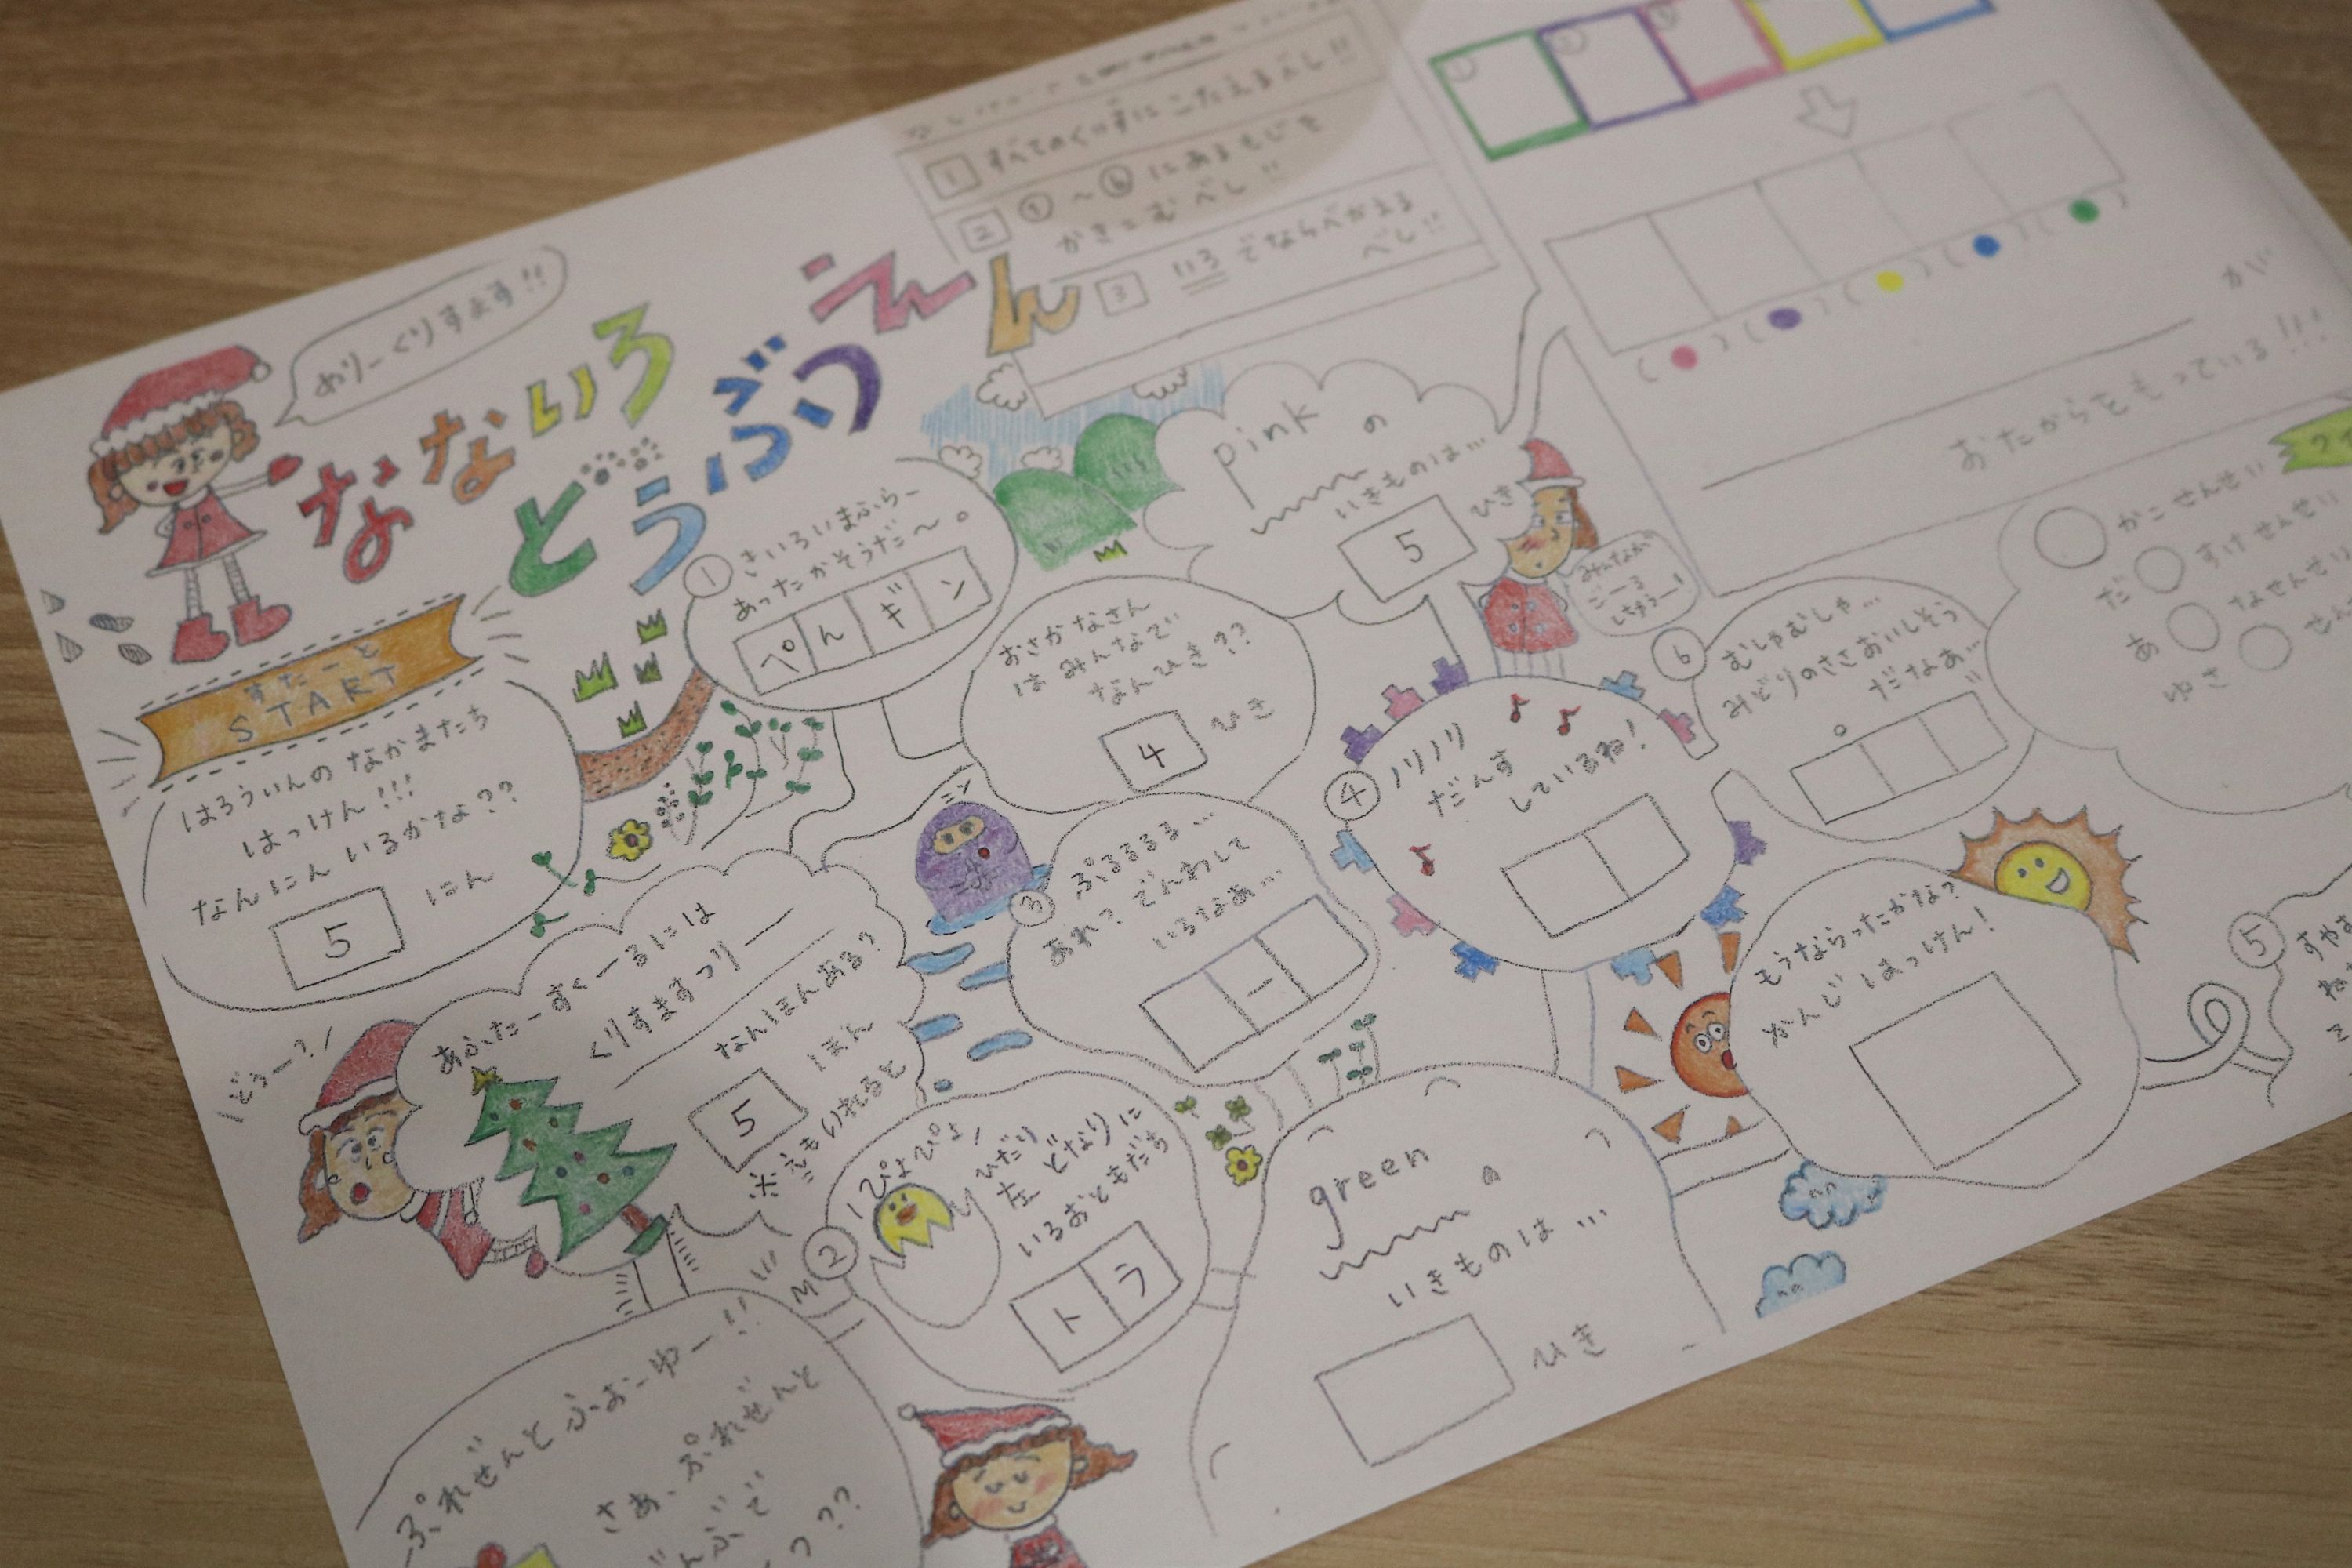 めりーくりすます!!
なないろ
どうぶつえん
1 すべてのくいずにこたえるべし!!
2 ①～⑥にあるもじを
かきこむべし!!
3 いろでならべかえる
べし!!
がい
おたからをもっている!!!
すたーと
START
はろういんのなかまたち
はっけん!!!
なんにんいるかな??
5 にん
① きいろいまふらー
あったかそうだ～。
ぺんギン
pinkの
いきものは…
5 ひき
みんなが
ごーる
しちゃうー!
おさかなさん
はみんなで
なんひき??
4 ひき
ニン
③ ぷるるるる…
あれ?でんわして
いるなあ…
ー
④ ノリノリ
だんす
しているね!
⑥ むしゃむしゃ…
みどりのささおいしそう
だなあ…
かこせんせい
だ すけせんせい
あ なせんせい
ゆさ
どぅー?
あふたーすくーるには
くりすますつりー
なんほんある?
5 ほん
※えもいれると
② ぴよぴよ
ひだり
左どなりに
いろおともだち
トラ
greenの
いきものは…
ひき
もうならったかな?
かんじはっけん!
⑤
ぷれぜんとふぉーゆー!!
さあ、ぷれぜんと
??